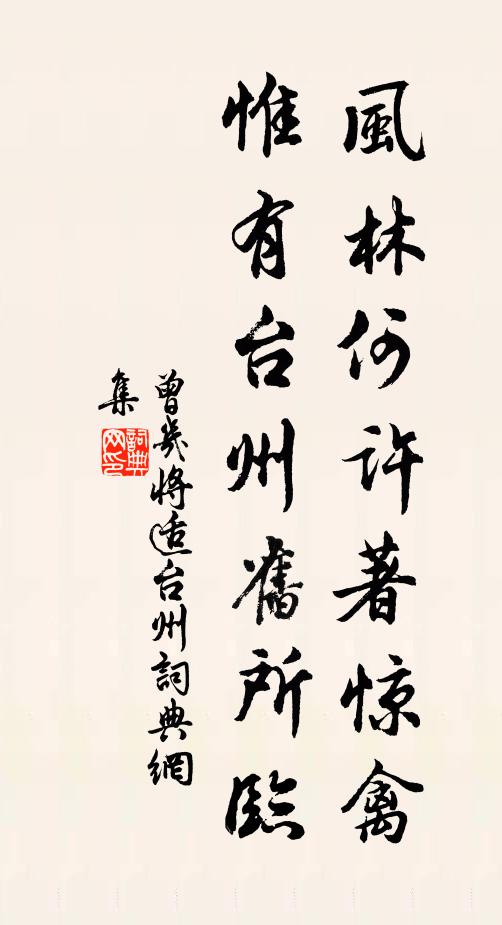 風林何許著惊禽
惟有台州舊所臨
曾幾將适台州詞典網
集
詞典
网印